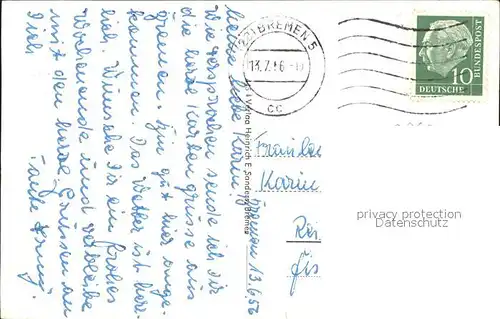 Bremen 13.6.56
Meine liebe Karin,
Wie versprochen sende ich Dir
die herzl. Karten grüsse aus
Bremen. Bin gut hier ange-
kommen. Das Wetter ist herr-
lich. Wünsche Dir ein frohes
Wochenende und verbleibe
mit den herzl. Grüssen an
Dich
Tante
(22) BREMEN 5
13.7.56
cc
10
DEUTSCHE
BUNDESPOST
Verlag Heinrich E. Sander, Bremen
Fräulein
Karin
privacy protection
Datenschutz